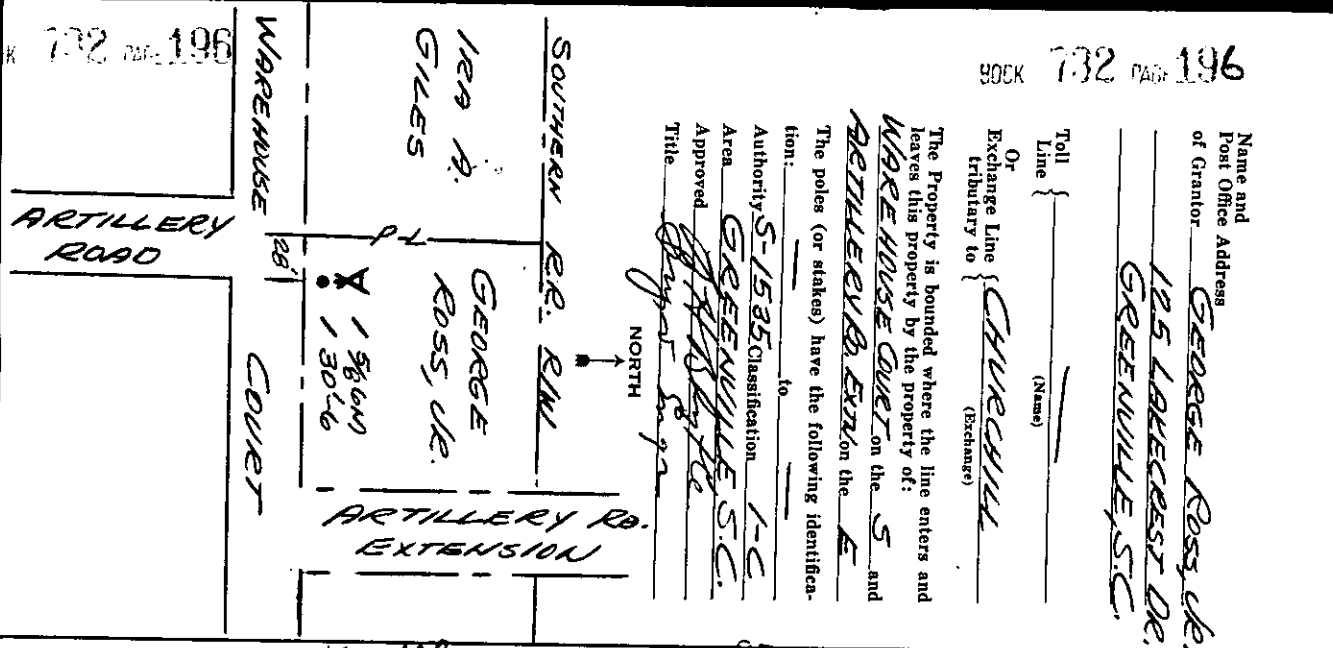 BOOK 732 PAGE 196
Name and
Post Office Address
of Grantor GEORGE ROSS, JR.
125 LAKECREST DR.
GREENVILLE, S.C.
Toll
Line
(Name)
Or
Exchange Line
tributary to CHURCHILL
(Exchange)
The Property is bounded where the line enters and
leaves this property by the property of:
WAREHOUSE COURT on the S and
ARTILLERY RD. EXTN on the E
The poles (or stakes) have the following identifica-
tion: to
Authority S-1535 Classification 1-C
Area GREENVILLE S.C.
Approved
Title
NORTH
SOUTHERN R.R. R/W
IRA A.
GILES
P-L
GEORGE
ROSS, JR.
28'
A
1 30'-6
WAREHOUSE COURT
ARTILLERY
ROAD
ARTILLERY RD.
EXTENSION
732 PAGE 196